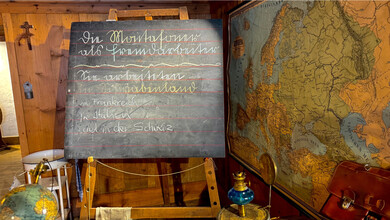 Die Montafoner
als Fremdarbeiter
Sie arbeiteten
im Schwabenland
in Frankreich
Und in der Schweiz